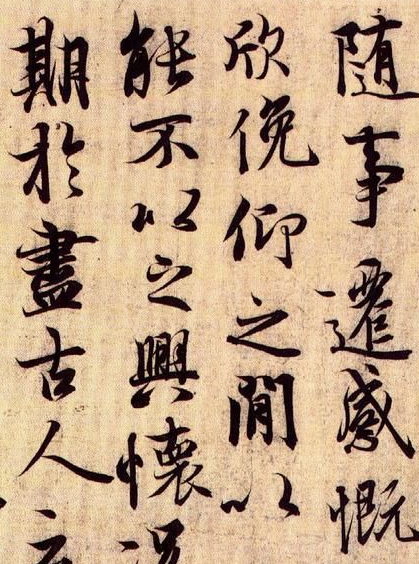 随事遷感慨
欣俛仰之間以
能不以之興懷況
期於盡古人云